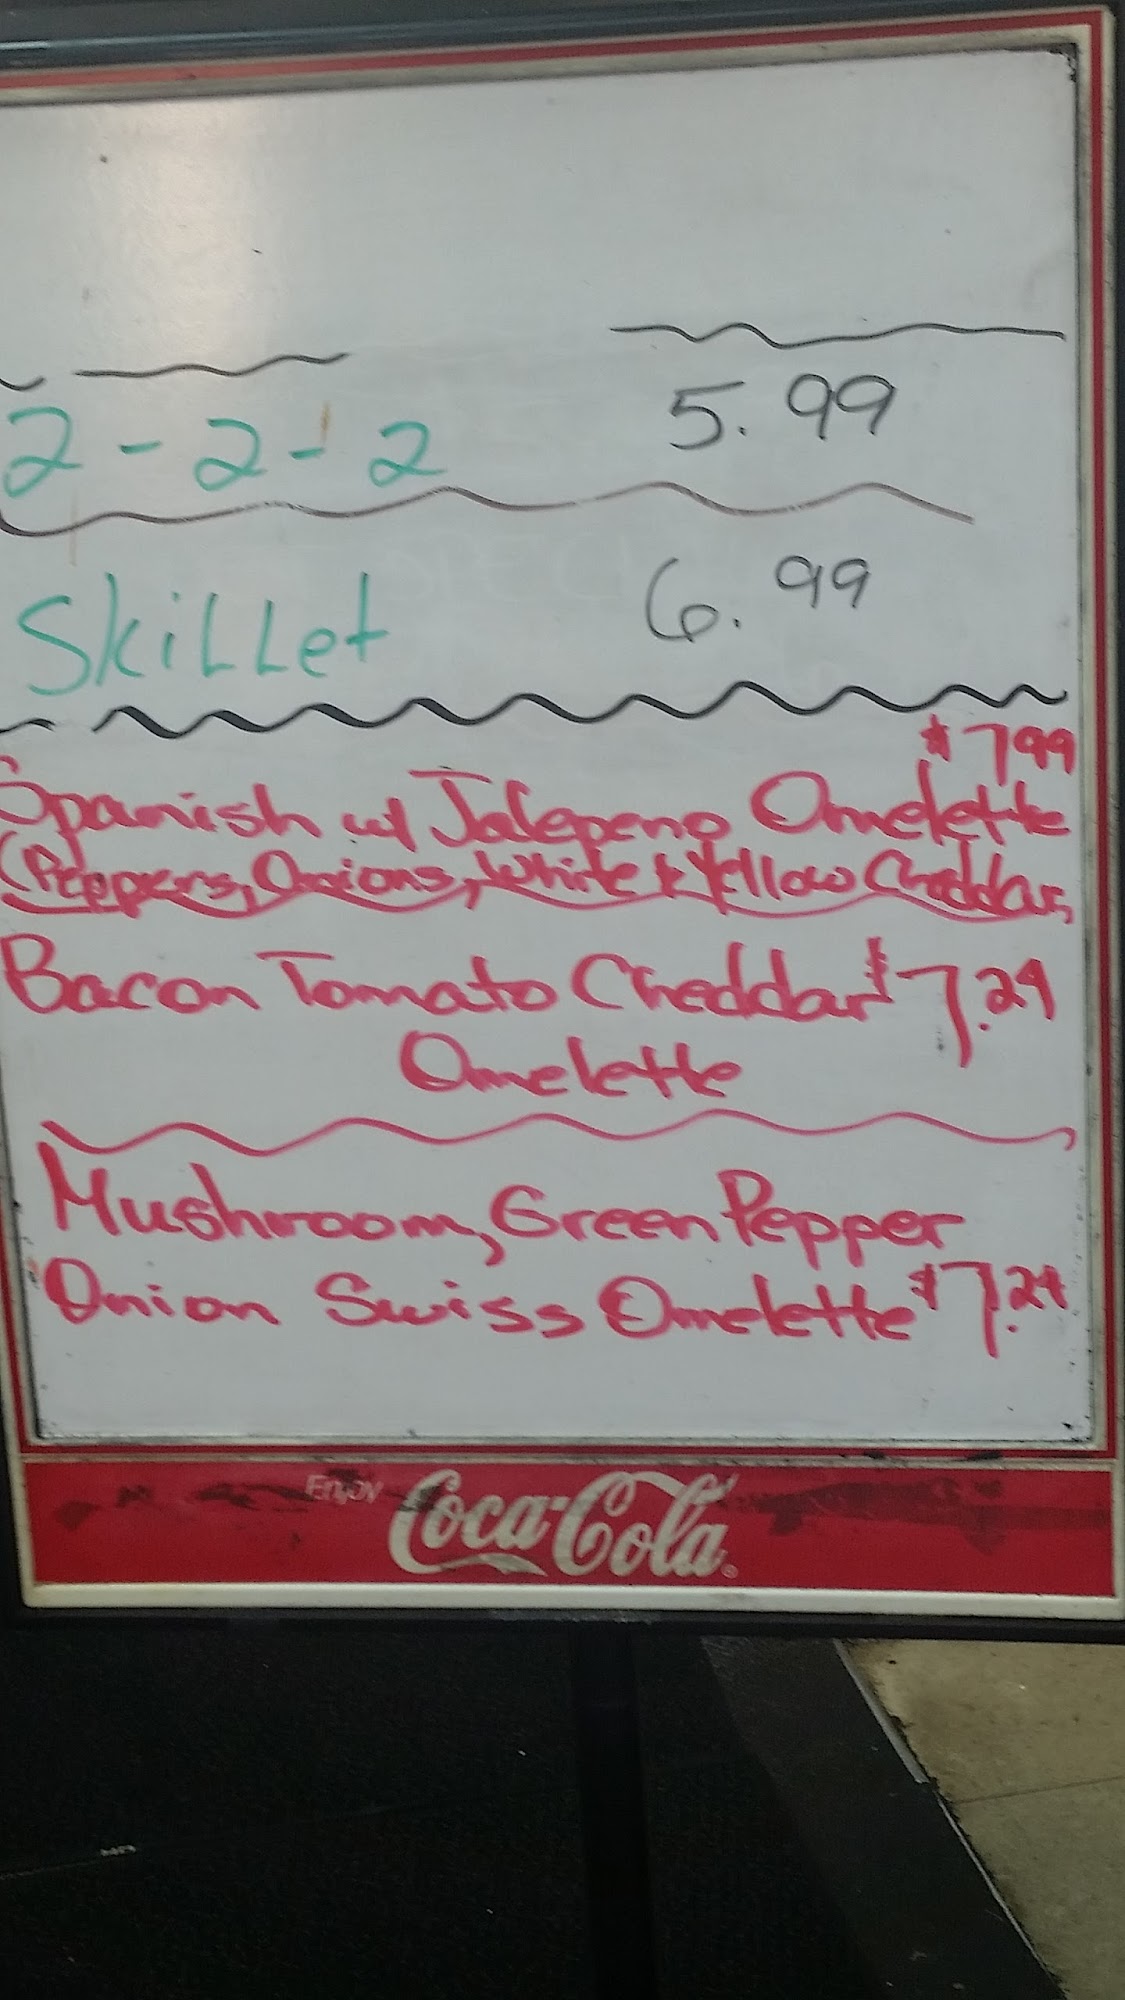 2-2-2 5.99
SkiLLet 6.99
$7.99
Spanish w/ Jalepeno Omelette
(Peppers, Onions, White & Yellow Cheddar,
Bacon Tomato Cheddar $7.29
Omelette
Mushroom, Green Pepper
Onion Swiss Omelette $7.29
Enjoy
Coca-Cola